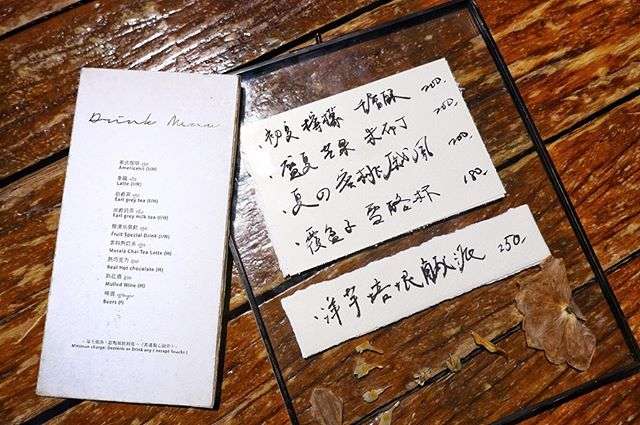 Drink Menu
美式咖啡
Americano (I/H)
拿鐵
Latte (I/H)
伯爵茶
Earl grey tea (I/H)
伯爵奶茶
Earl grey milk tea (I/H)
Fruit Special Drink (I/H)
Masala Chai Tea Latte (H)
熱巧克力
Real Hot chocolate (H)
熱紅酒
Mulled Wine (H)
啤酒
Beers (I)
Minimum charge: Desserts or Drink any ( except Snacks )
初夏 檸檬 塔酥 200.
盛夏 芒果 米布丁 200.
夏の蜜桃戚風 200.
覆盆子 雪酪杯 180.
洋芋培根鹹派 250.